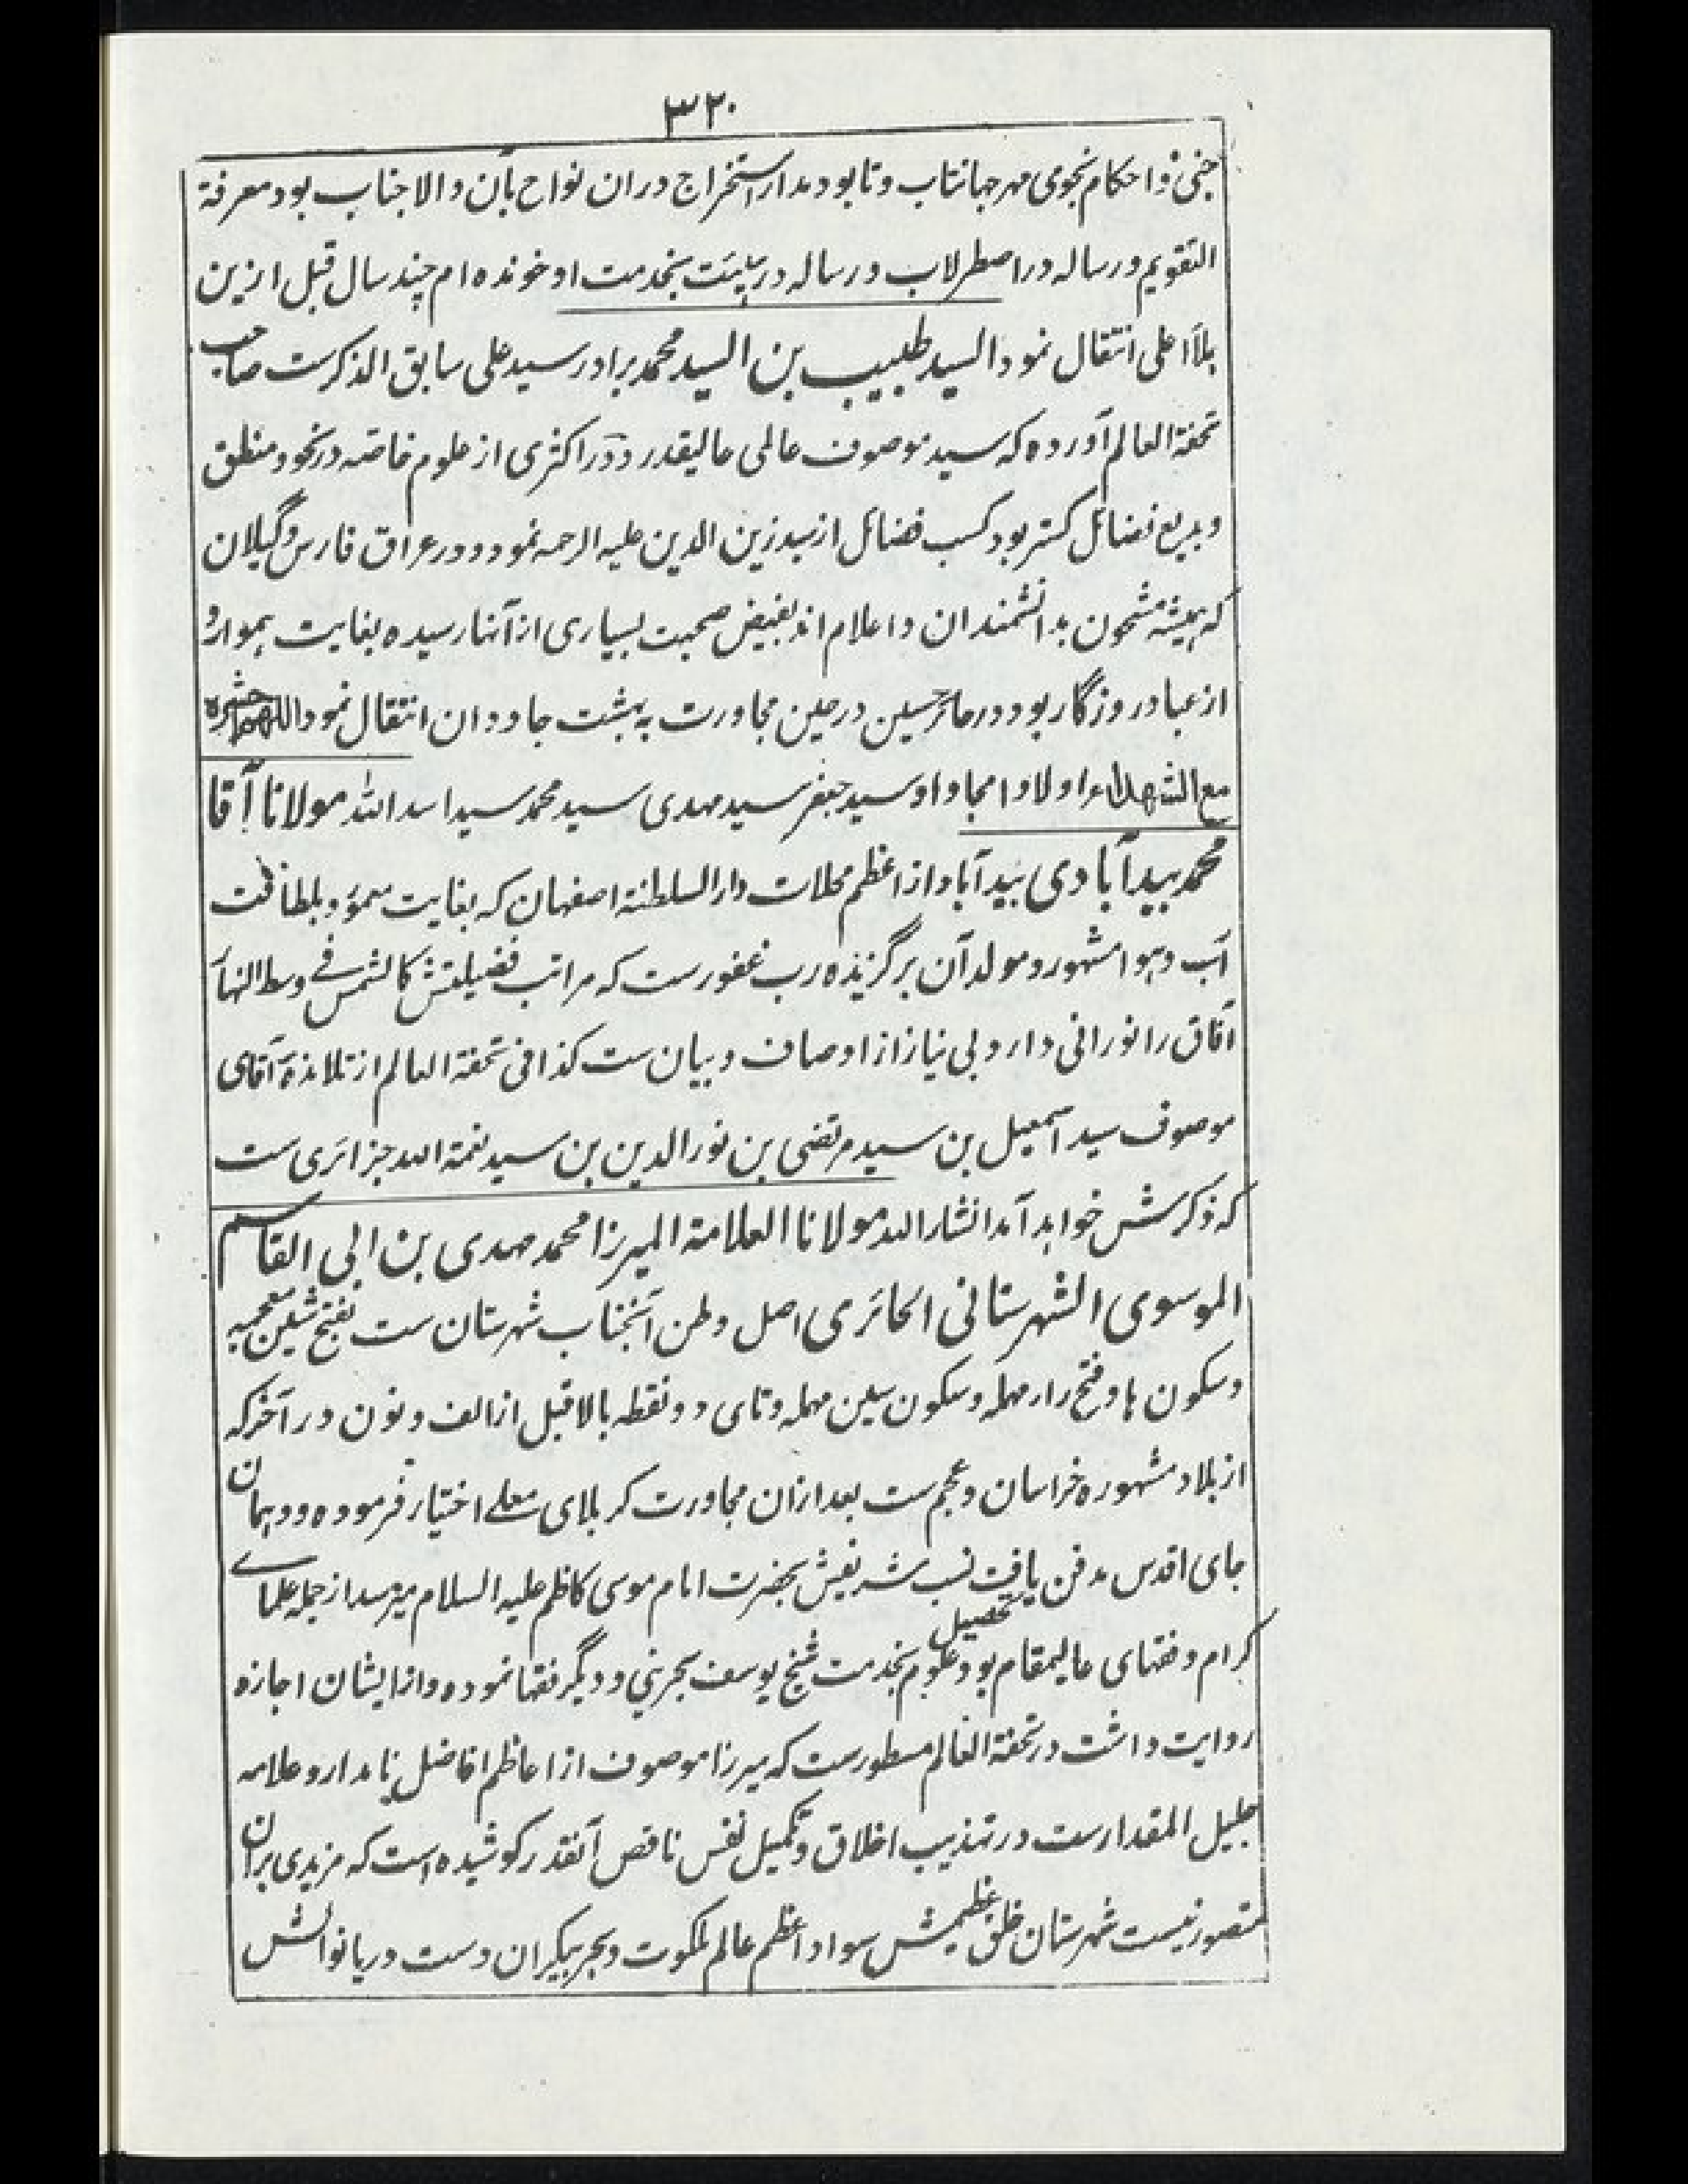 ۳۲۰
جفر و احکام نجومی مهر جهانتاب و تا بود مدار استخراج دران نواح بآن والاجناب بود معرفة
التقویم و رساله در اصطرلاب و رساله در هیئت بخدمت او خوانده ام چند سال قبل ازین
بملأ اعلی انتقال نمود السید طبیب بن السید محمد برادر سید علی سابق الذکرست صاحب
تحفة العالم آورده که سید موصوف عالمی عالیقدر و در اکثری از علوم خاصه در نحو و منطق
و بدیع فضائل گستر بود کسب فضائل از سید زین الدین علیه الرحمه نمود و در عراق فارس و گیلان
که همیشه مشحون بدانشمندان و اعلام اند بفیض صحبت بسیاری از آنها رسیده بغایت هموار و
از عباد روزگار بود در حائر حسین در عین مجاورت به بهشت جاودان انتقال نمود اللهم احشره
مع الشهداء اولاد امجاد او سید جعفر سید مهدی سید محمد سید اسد الله مولانا آقا
محمد بیدآبادی بیدآباد از اعظم محلات دار السلطنة اصفهان که بغایت معمور و بلطافت
آب و هوا مشهور و مولد آن برگزیده رب غفورست که مراتب فضیلتش کالشمس فی وسط النهار
آفاق را نورانی دارد و بی نیاز از اوصاف و بیان ست کذا فی تحفة العالم از تلامذهٔ آقای
موصوف سید اسمعیل بن سید مرتضی بن نور الدین بن سید نعمة الله جزائری ست
که ذکرش خواهد آمد انشاء الله مولانا العلامة المیرزا محمد مهدی بن ابی القاسم
الموسوی الشهرستانی الحائری اصل وطن آنجناب شهرستان ست بفتح شین معجمه
و سکون ها و فتح راء مهمله و سکون سین مهمله و تای دو نقطه بالا قبل از الف و نون در آخر که
از بلاد مشهوره خراسان و عجم ست بعد ازان مجاورت کربلای معلے اختیار فرموده و در همان
جای اقدس مدفن یافت نسب شریفش بحضرت امام موسی کاظم علیه السلام میرسد از جمله علمائے
کرام و فقهای عالیمقام بود تحصیل علوم بخدمت شیخ یوسف بحرینی و دیگر فقها نموده و از ایشان اجازه
روایت داشت در تحفة العالم مسطورست که میرزا موصوف از اعاظم افاضل نامدار و علامه
جلیل المقدارست در تهذیب اخلاق و تکمیل نفس ناقص آنقدر کوشیده است که مزیدی بران
متصور نیست شهرستان خلق عظیمش سواد اعظم عالم ملکوت و بحر بیکران دست دریا نوالش